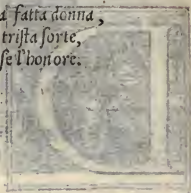 a fatta donna,
trista sorte,
se l'honore.
D